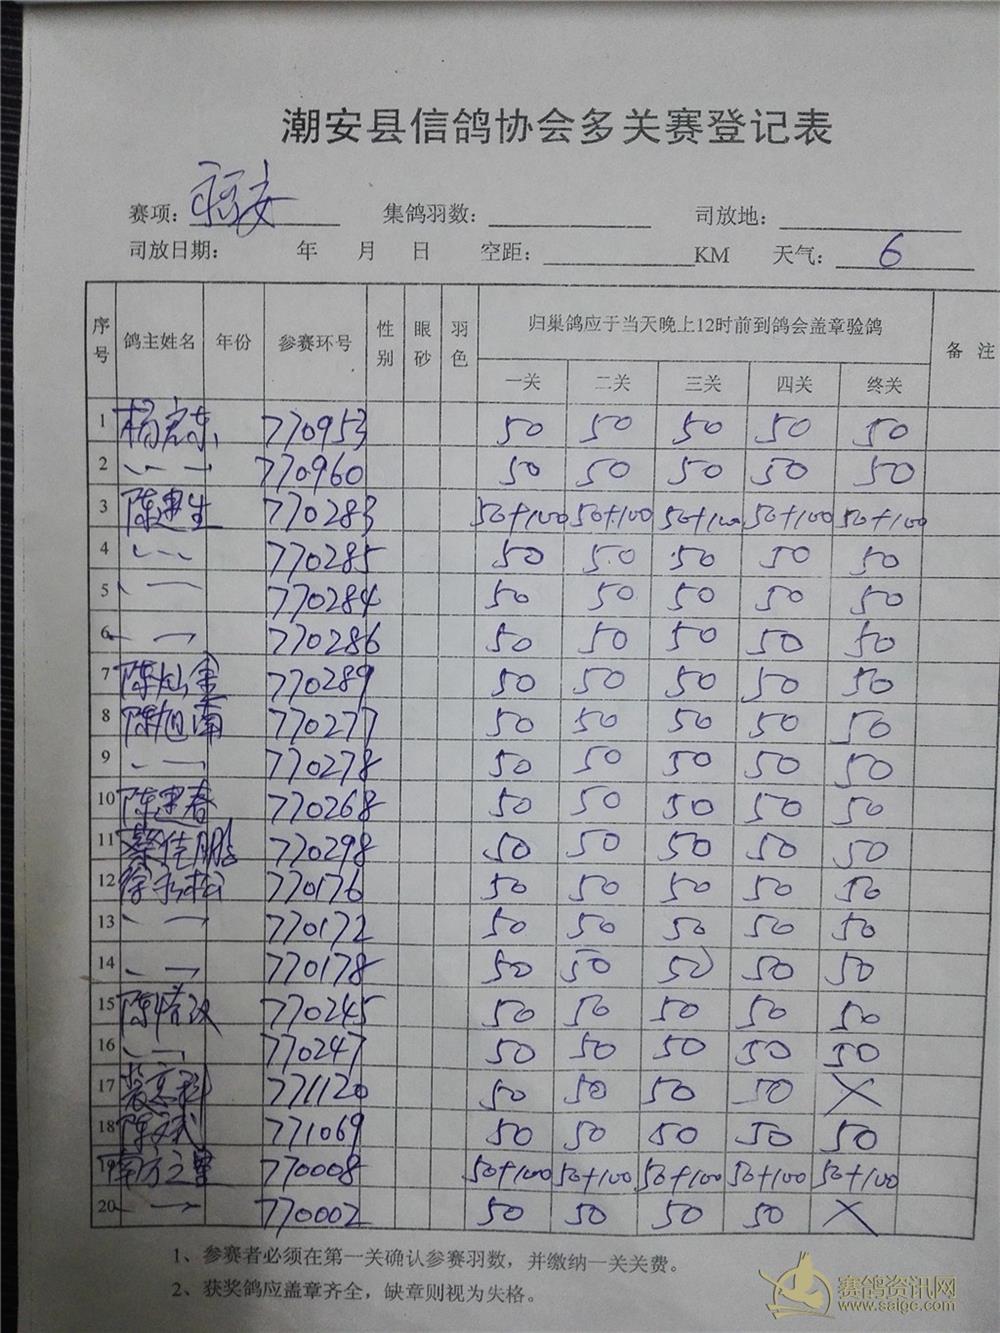 潮安县信鸽协会多关赛登记表
赛项: 集鸽羽数: 司放地:
司放日期: 年 月 日 空距: KM 天气: 6
序号 鸽主姓名 年份 参赛环号 性别 眼砂 羽色 归巢鸽应于当天晚上12时前到鸽会盖章验鸽 备 注
一关 二关 三关 四关 终关
1 杨宏东 770953 50 50 50 50 50
2 770960 50 50 50 50 50
3 陈建生 770283 50+100 50+100 50+100 50+100 50+100
4 770285 50 50 50 50 50
5 770284 50 50 50 50 50
6 770286 50 50 50 50 50
7 陈灿 770289 50 50 50 50 50
8 陈旭南 770277 50 50 50 50 50
9 770278 50 50 50 50 50
10 陈建春 770268 50 50 50 50 50
11 蔡佳鹏 770298 50 50 50 50 50
12 徐 松 770176 50 50 50 50 50
13 770172 50 50 50 50 50
14 770178 50 50 50 50 50
15 陈 770245 50 50 50 50 50
16 770247 50 50 50 50 50
17 771120 50 50 50 50 X
18 陈 771069 50 50 50 50 50
19 南方之星 770008 50+100 50+100 50+100 50+100 50+100
20 770002 50 50 50 50 X
1、参赛者必须在第一关确认参赛羽数，并缴纳一关关费。
2、获奖鸽应盖章齐全，缺章则视为失格。
赛鸽资讯网
www.saigc.com